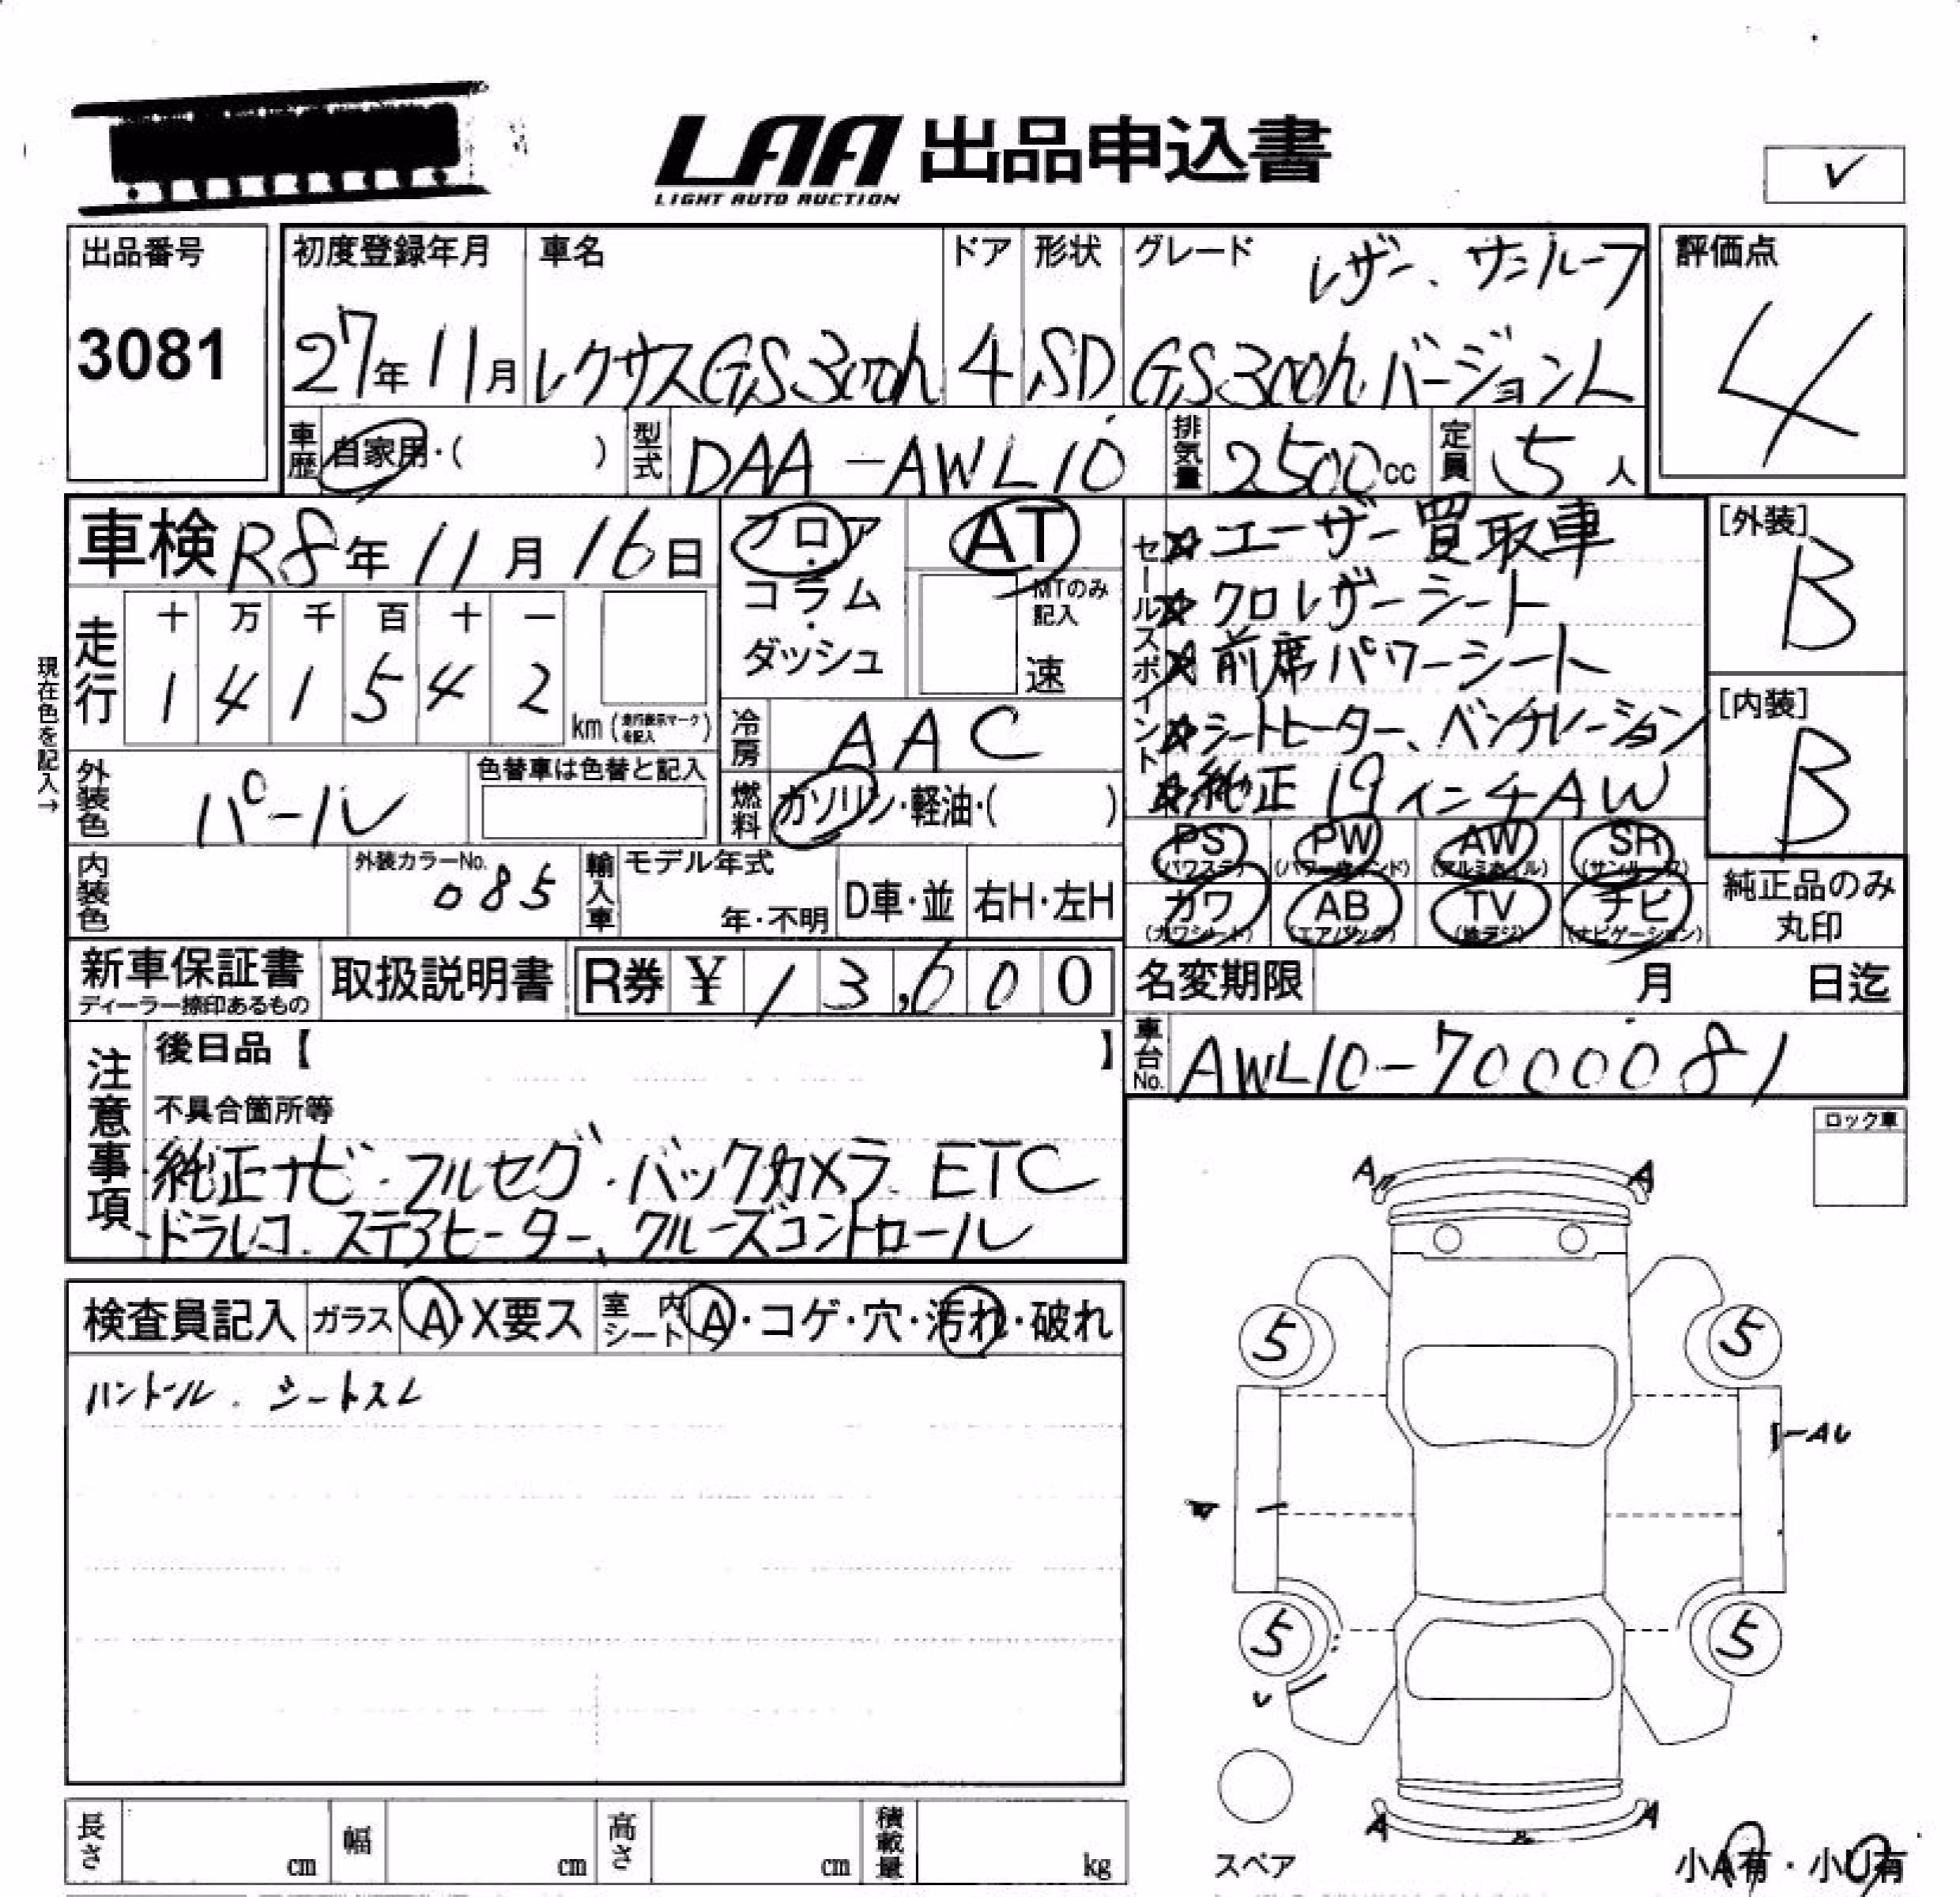 LAA 出品申込書
LIGHT AUTO AUCTION
✓
出品番号
3081
初度登録年月
27年11月
車名
レクサスGS300h
ドア
4
形状
SD
グレード
レザー、サンルーフ
GS300h バージョンL
評価点
4
車歴 自家用・( )
型式 DAA-AWL10
排気量 2500cc
定員 5人
車検 R8年11月16日
フロア・コラム・ダッシュ
AT
MTのみ記入
速
走行
十 万 千 百 十 一
1 4 1 5 4 2
km (走行表示マークを記入)
現在色を記入→
冷房 AAC
外装色 パール
色替車は色替と記入
燃料 ガソリン・軽油・( )
内装色
外装カラーNo. 085
輸入車 モデル年式 年・不明
D車・並
右H・左H
セールスポイント
☆ユーザー買取車
☆クロレザーシート
☆前席パワーシート
☆シートヒーター、ベンチレーション
☆純正19インチAW
[外装]
B
[内装]
B
PS (パワステ) PW (パワーウィンド) AW (アルミホイル) SR (サンルーフ)
カワ (カワシート) AB (エアバッグ) TV (地デジ) ナビ (ナビゲーション)
純正品のみ丸印
新車保証書
ディーラー捺印あるもの
取扱説明書
R券 ¥ 13,600
名変期限 月 日迄
車台No. AWL10-7000081
注意事項
後日品【 】
不具合箇所等
純正ナビ・フルセグ・バックカメラ、ETC
ドラレコ、ステアヒーター、クルーズコントロール
ロック車
検査員記入 ガラス A・X要ス 室内シート A・コゲ・穴・汚れ・破れ
ハンドル、シートスレ
A A
5 5
AU
A
5 5
U
A A
スペア
小A有・小U有
長さ cm 幅 cm 高さ cm 積載量 kg